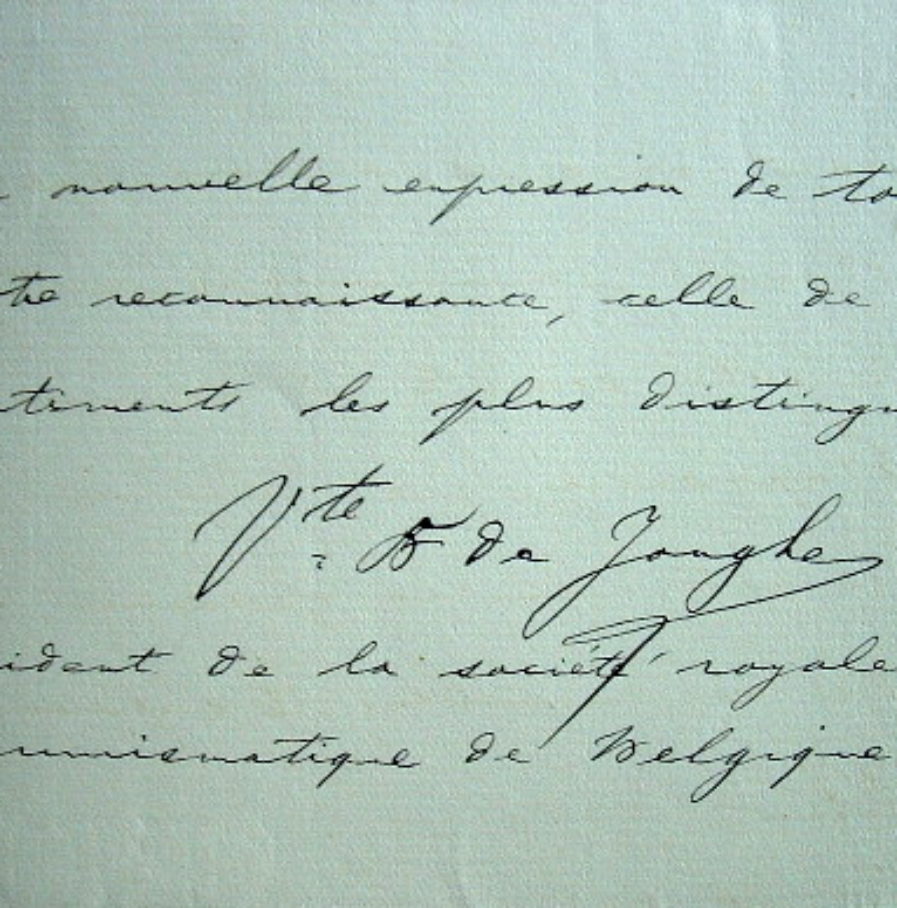 nouvelle expression de to
tre reconnaissance, celle de
timents les plus distingu
Vte B de Jonghe
ident de la société royale
numismatique de Belgique